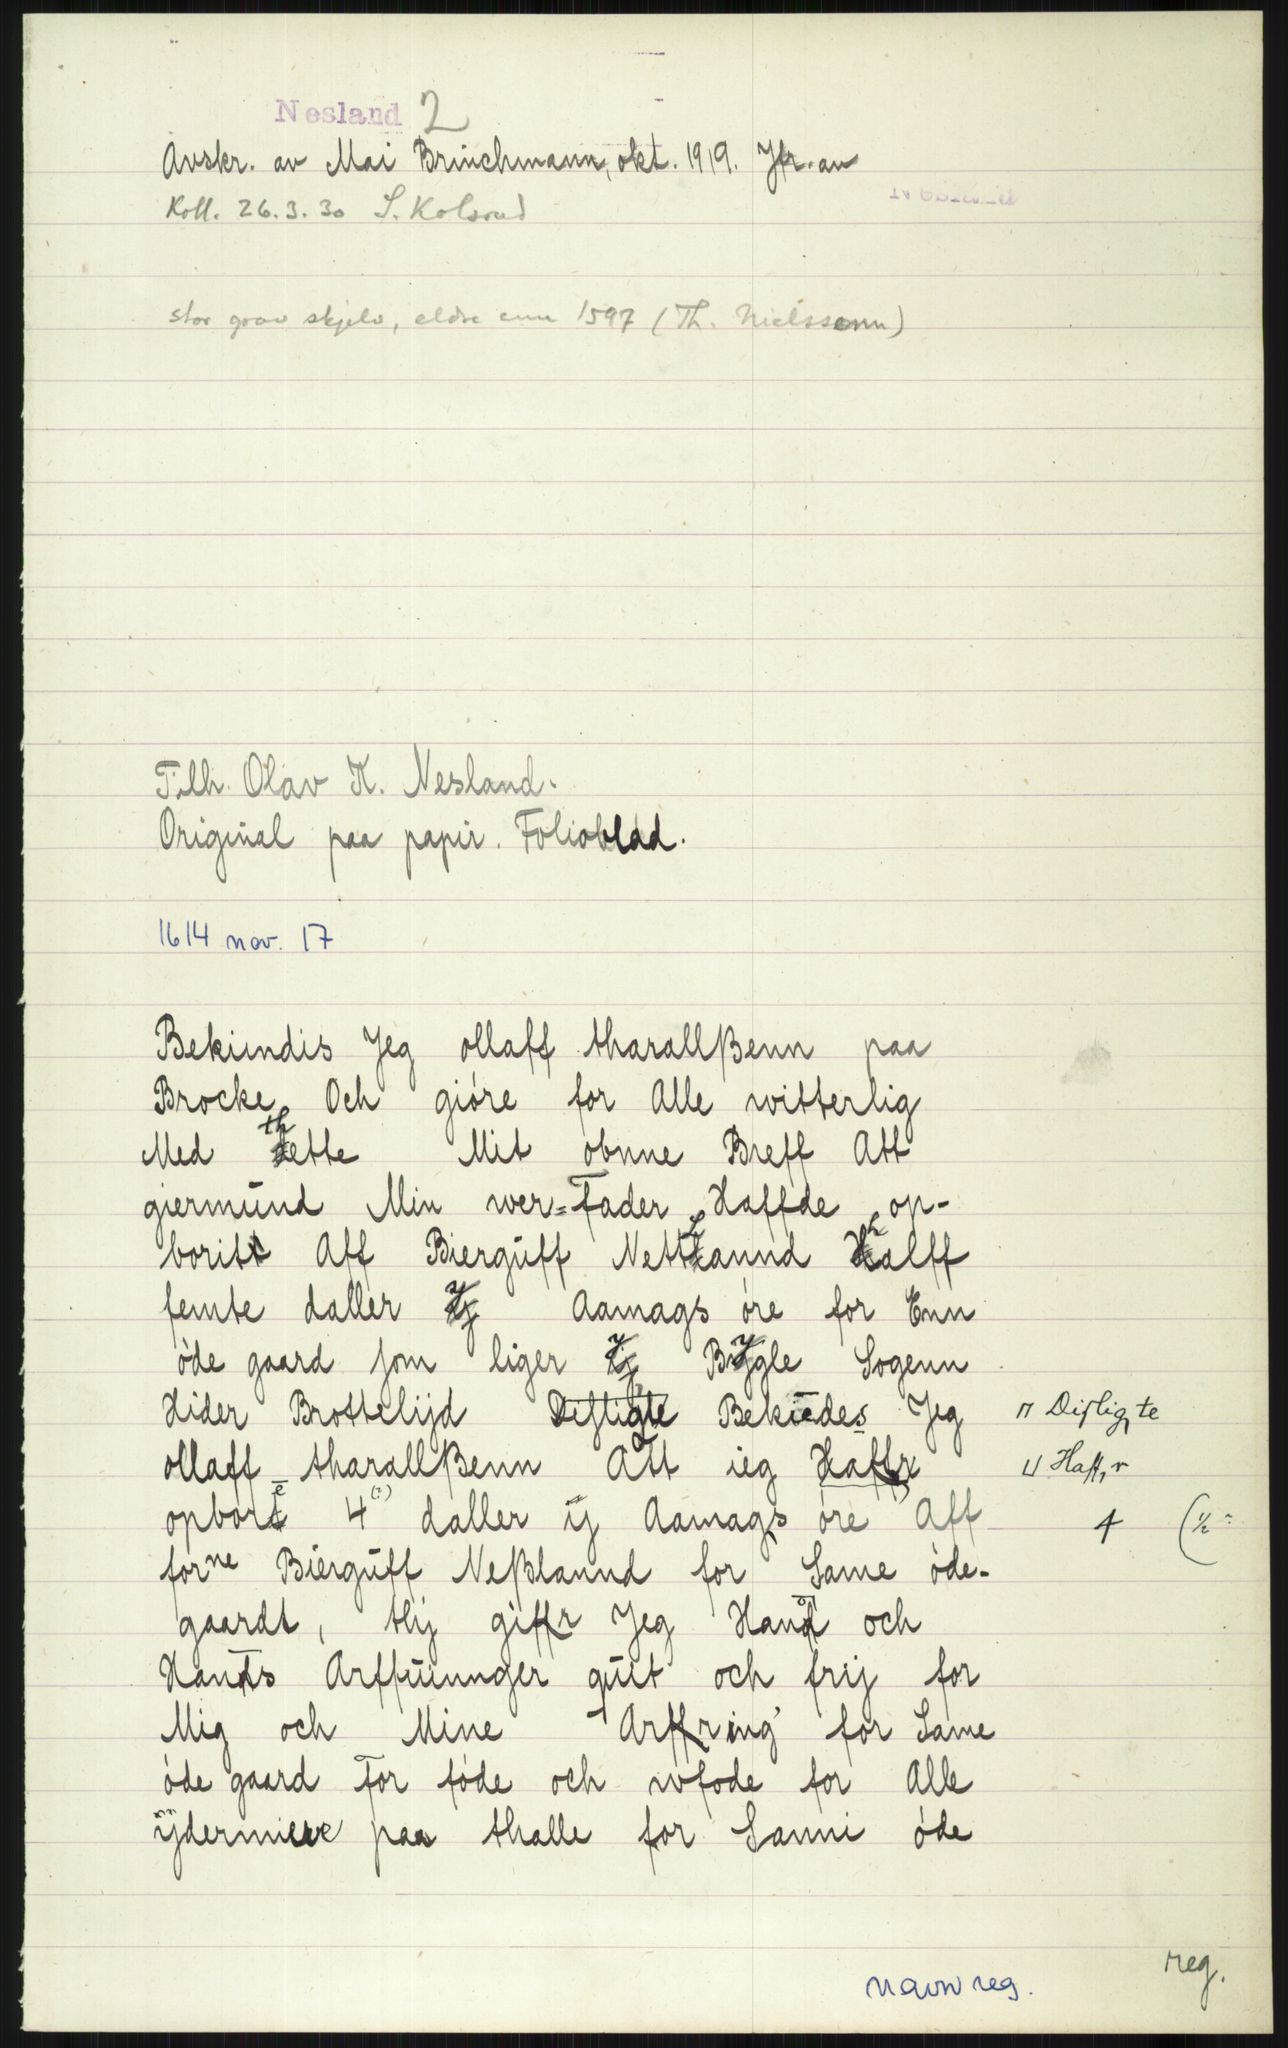 Nesland 2
Avskr. av Mai Brinchmann, okt. 1919. Jfr. an
Nesland
Koll. 26.3.30 S. Kolsrud
stor grov skjelv, eldre enn 1597 (Th. Nielssønn)
Tilh. Olav K. Nesland.
Original paa papir. Folioblad.
1614 nov. 17
Bekiindis Jeg ollaff tharallßenn paa
Brocke Och gióre for Alle witterlig
Med thette Mit obnne Breff Att
giermúnd Min wer=Fader Haffde op-
borit Aff Biergúff Nettlannd halff
femte daller Aamags óre for Enn
óde gaard som liger Bygle Sogenn
Hider Brottelijd Disligte Bekiēdes Jeg ⊓ Dislig,te
ollaff tharallßenn Att ieg Haffr ⊔ Haff,r
opbort 4(:) daller ij Aamags óre Aff 4 (½ :
forne Biergúff Neßlannd for Same óde-
gaardt, thij giffr Jeg Hanō och
Hants Arffúinnger qúit och frij for
Mig och Mine Arffring' for Same
óde gaard For fóde och wfode for Alle
ÿdermiere paa thalle for Sanni óde
navnreg.
reg.